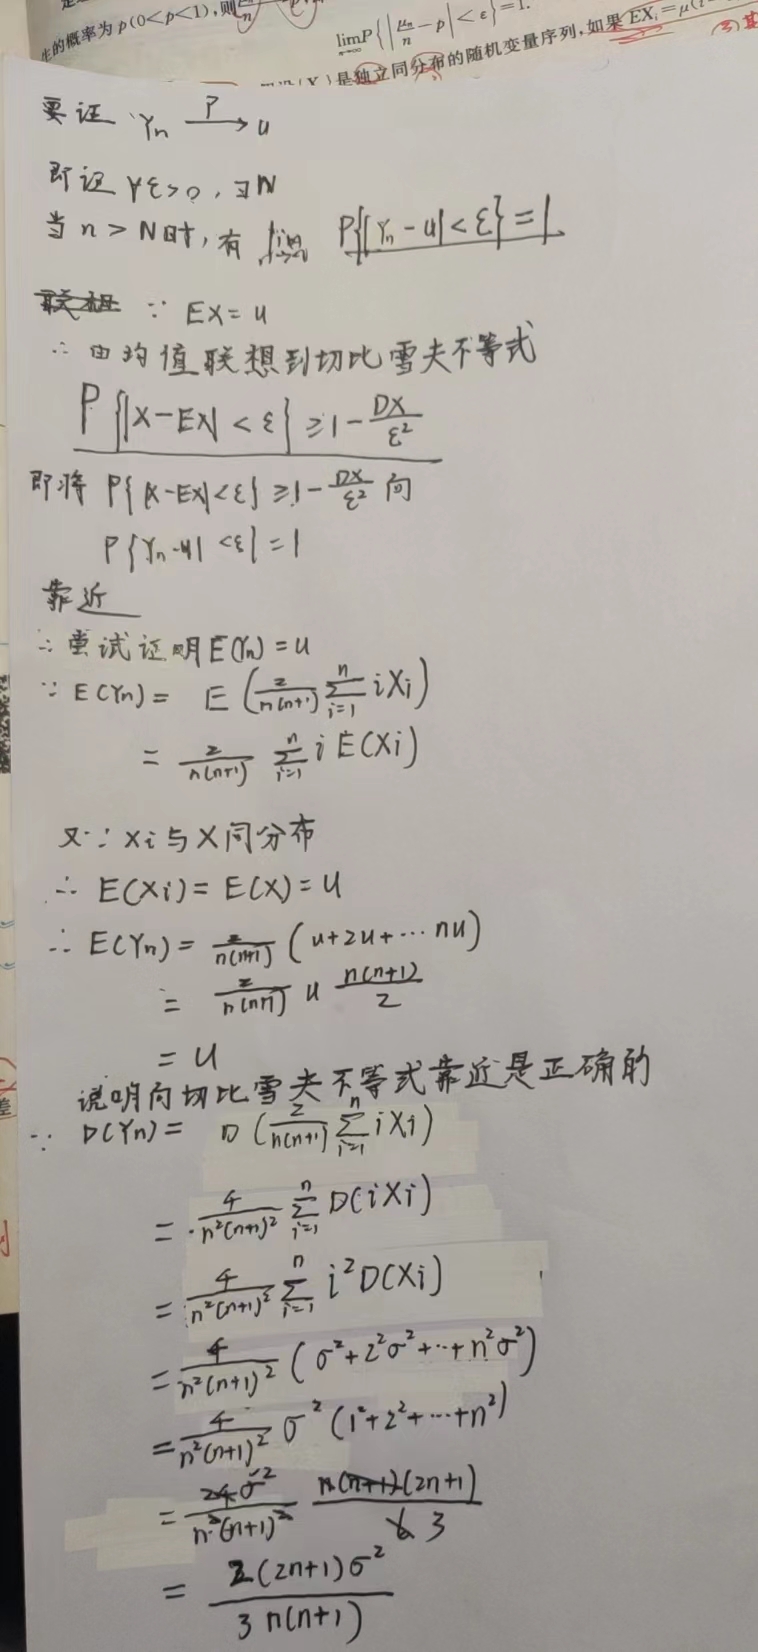 生的概率为p(0<p<1),则
lim P{|μn/n − p|<ε}=1.
n→∞
是独立同分布的随机变量序列,如果EXi=μ(i
要证 Yn —P→ u
即证 ∀ε>0,∃N
当n>N时,有 lim n→∞ P{|Yn-u|<ε}=1
∵ EX=u
∴ 由均值联想到切比雪夫不等式
P{|X-EX|<ε}≥1-DX/ε²
即将 P{|X-EX|<ε}≥1-DX/ε² 向
P{Yn-u|<ε}=1
靠近
∴尝试证明E(Yn)=u
∵ E(Yn)= E(2/n(n+1) ∑_{i=1}^{n} iXi)
= 2/n(n+1) ∑_{i=1}^{n} i E(Xi)
又∵ Xi与X同分布
∴ E(Xi)=E(X)=u
∴ E(Yn)= 2/n(n+1) (u+2u+⋯nu)
= 2/n(n+1) u n(n+1)/2
= u
说明向切比雪夫不等式靠近是正确的
∵ D(Yn)= D(2/n(n+1) ∑_{i=1}^{n} iXi)
= 4/n²(n+1)² ∑_{i=1}^{n} D(iXi)
= 4/n²(n+1)² ∑_{i=1}^{n} i²D(Xi)
= 4/n²(n+1)² (σ²+2²σ²+⋯+n²σ²)
= 4/n²(n+1)² σ²(1²+2²+⋯+n²)
= 24σ²/n²(n+1)² n(n+1)(2n+1)/6 3
= 2(2n+1)σ²/3n(n+1)